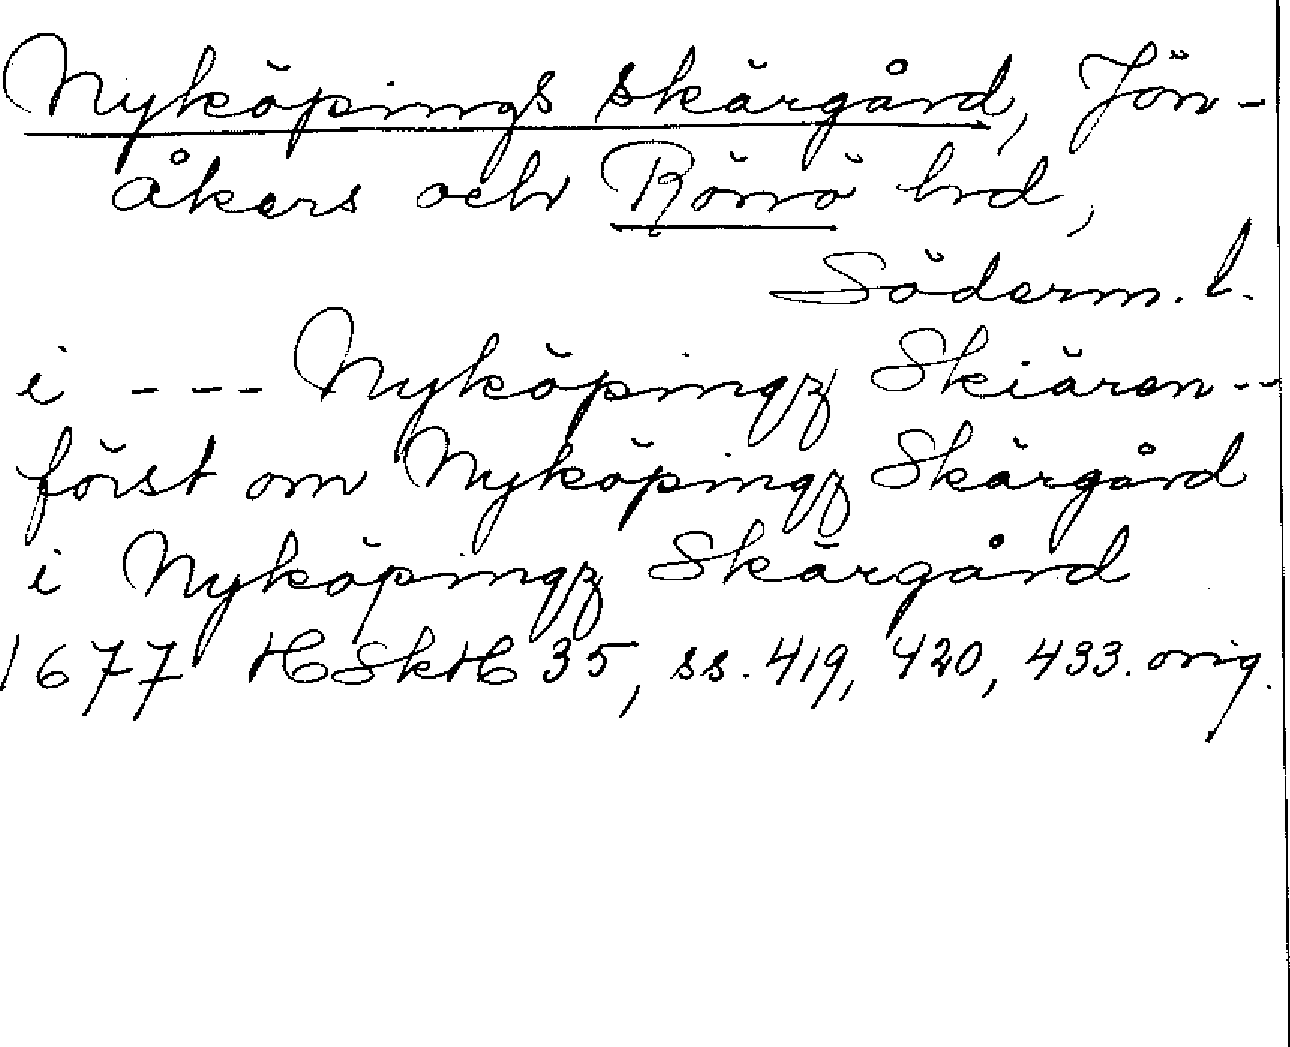 Nyköpings skärgård, Jön-
åkers och Rönö hrd,
Söderm. l.
i --- Nyköpingz Skiären--
först om Nyköpingz Skärgård
i Nyköpingz Skärgård
1677 HSkH 35, ss. 419, 420, 433. orig.